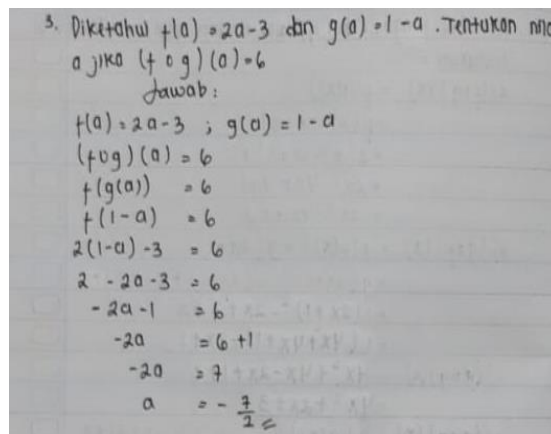 3. Diketahui f(a) = 2a-3 dan g(a) = 1-a. Tentukan
a jika (f o g)(a) = 6
Jawab:
f(a) = 2a-3 ; g(a) = 1-a
(fog)(a) = 6
f(g(a)) = 6
f(1-a) = 6
2(1-a)-3 = 6
2-2a-3 = 6
-2a-1 = 6
-2a = 6+1
-2a = 7
a = -7/2